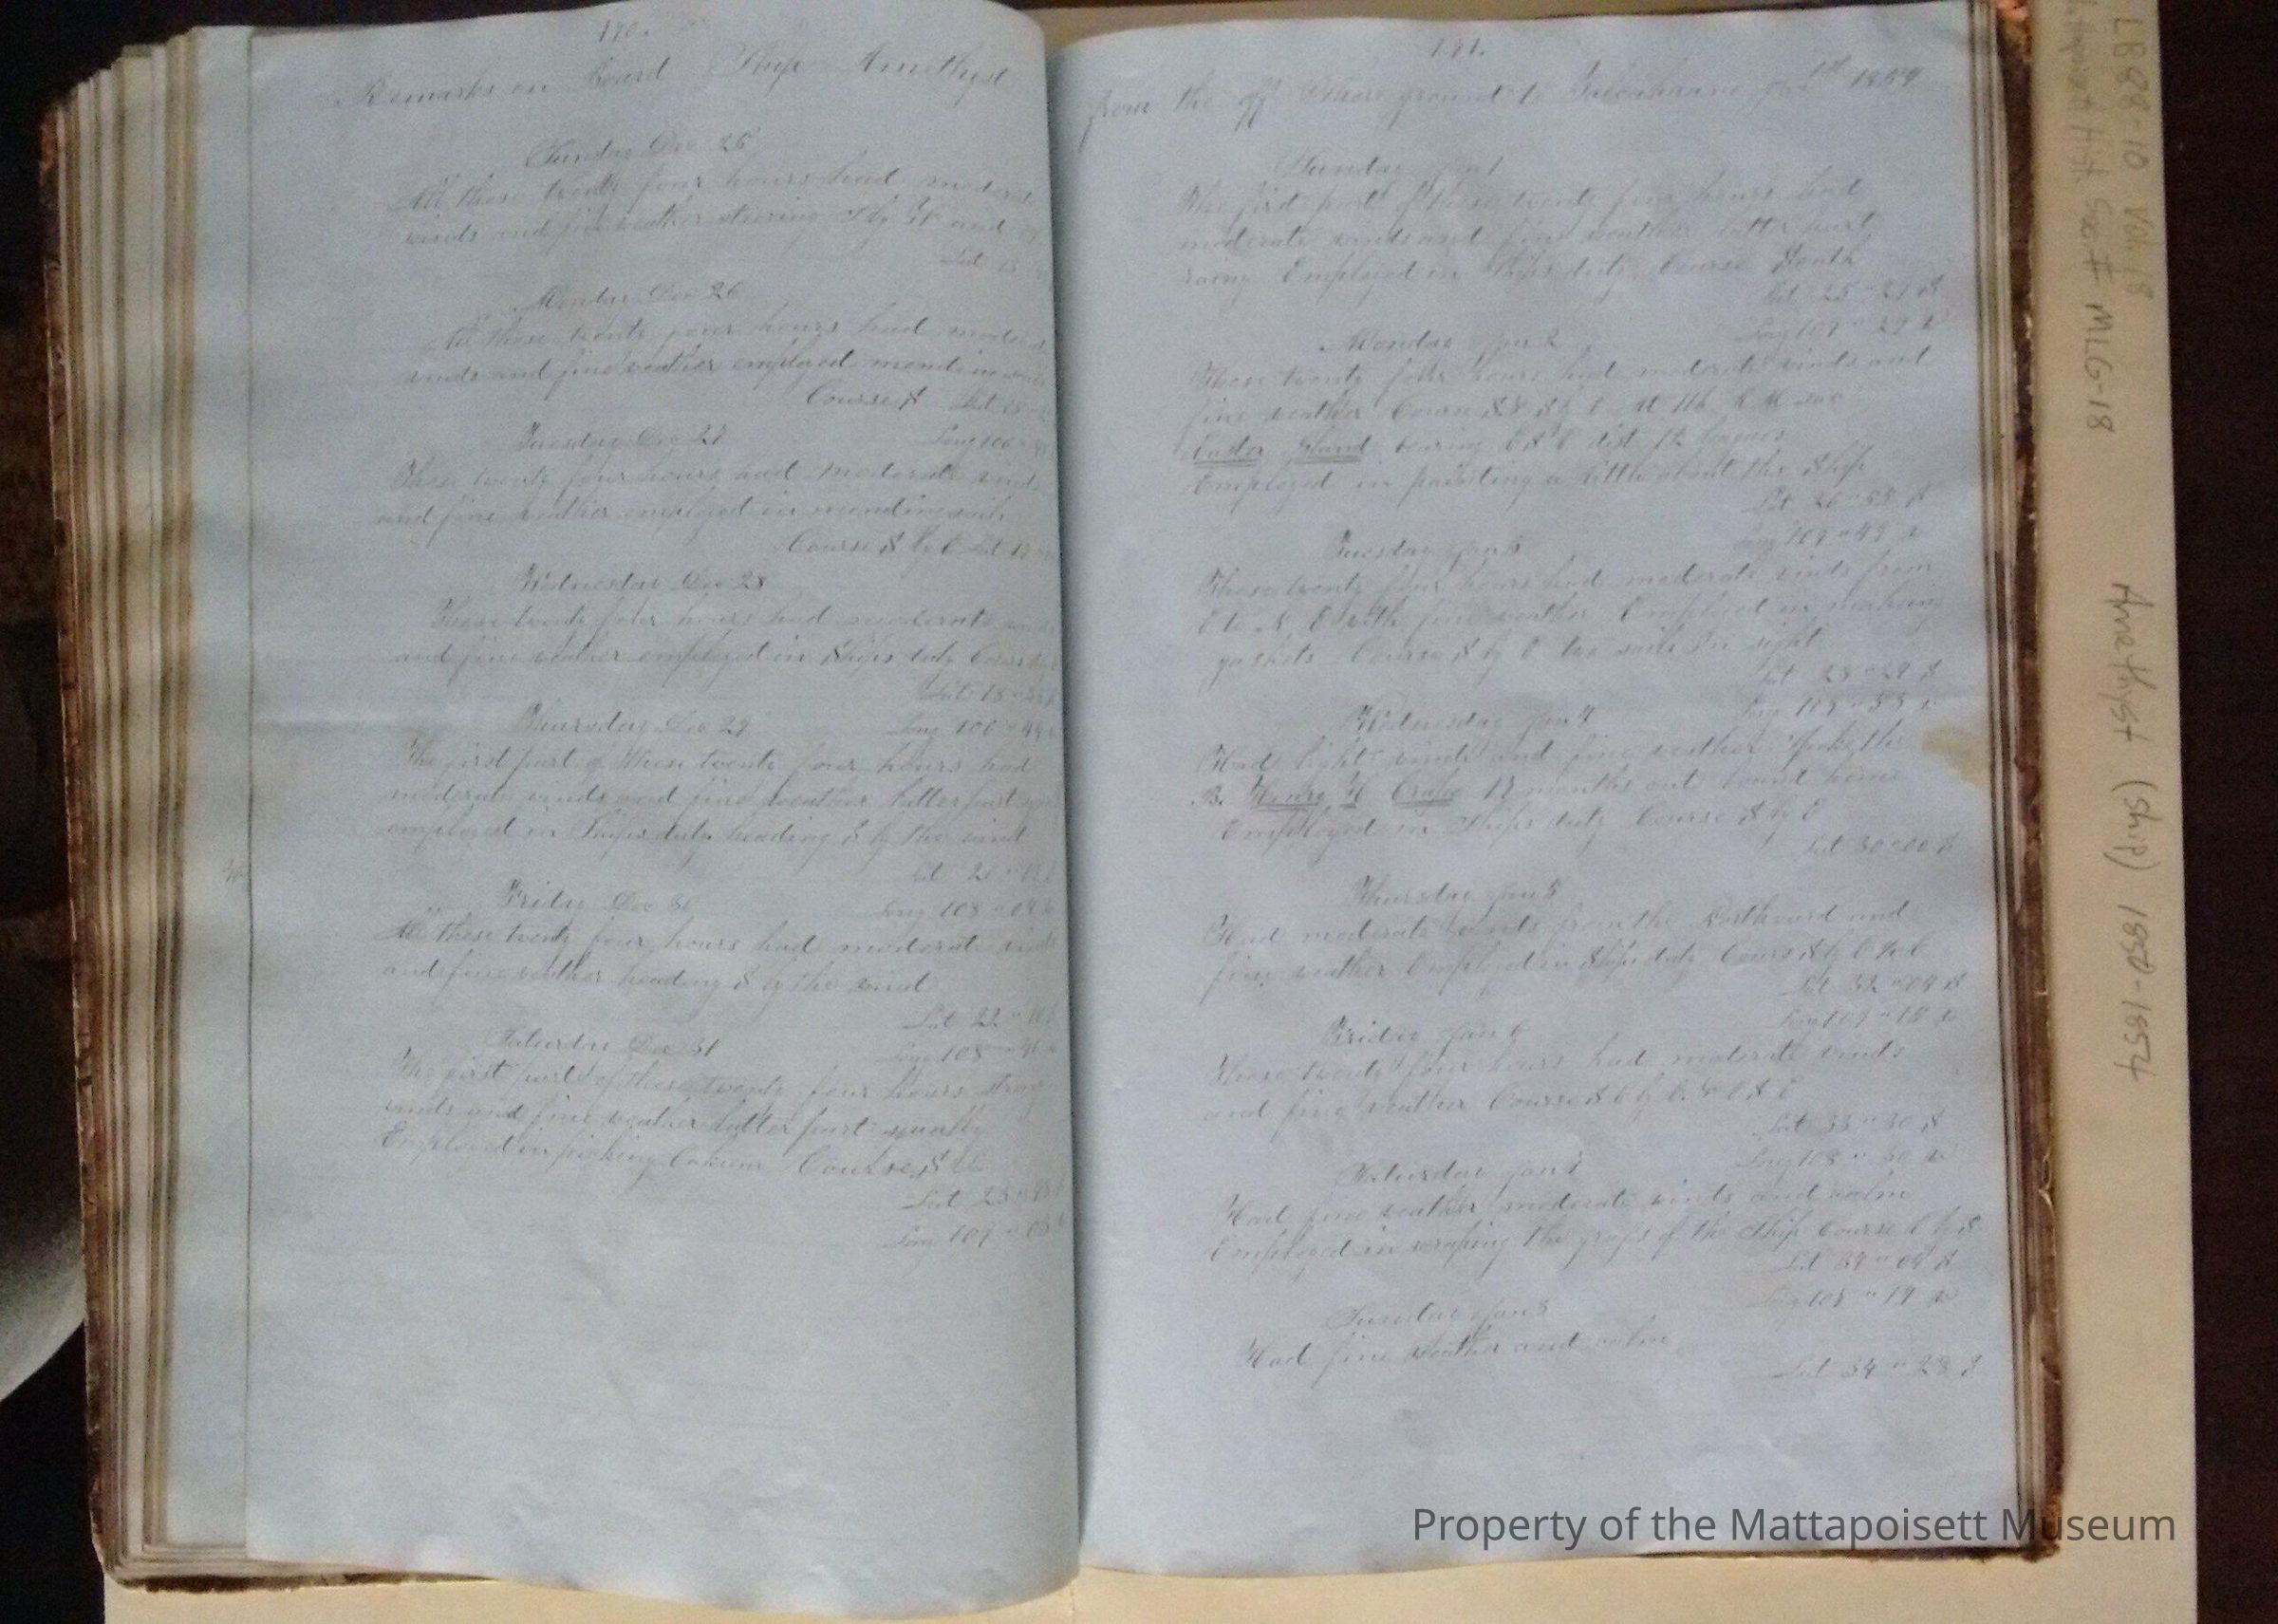 190.
Remarks on Board Ship Amethyst
Sunday Dec 25
All these twenty four hours had moderat
winds and fine weather steering S by W and
Lat
Monday Dec 26
All these twenty four hours had moderat
winds and fine weather employed mending
Course S Lat
Tuesday Dec 27
Long 106
These twenty four hours had moderate winds
and fine weather employed in mending sails
Course S by E Lat
Wednesday Dec 28
These twenty four hours had moderate
and fine weather employed in Ships duty Course
Lat 18
Thursday Dec 29
Long 106 " 44
The first part of these twenty four hours had
moderate winds and fine weather latter part
employed in Ships duty heading S by the wind
Lat 20
Friday Dec 30
Long 108
All these twenty four hours had moderate winds
and fine weather heading S by the wind
Lat 22
Saturday Dec 31
Long 108
The first part of these twenty four hours strong
winds and fine weather latter part squally
Employed in picking Oakum Course S
Lat 23
Long 109
191.
from the off Shore ground to Talcahuano Jan 1st 1854
Sunday Jan 1
The first part of these twenty four hours had
moderate winds and fine weather latter part
rainy Employed in Ships duty Course South
Lat 25 " 21 S
Monday Jan 2
Long 109 " 29 W
These twenty four hours had moderate winds and
fine weather Course S & S by E At M saw
Easter Island bearing E S E dist 12 leagues
Employed in painting a little about the Ship
Lat 26 " 55 S
Tuesday Jan 3
Long 109 " 49 W
These twenty four hours had moderate winds from
E to N E with fine weather Employed in making
gaskets Course S by E two sails in sight
Lat 28 " 29 S
Wednesday Jan 4
Long 109 " 53 W
Had light winds and fine weather Spoke the
B. Henry H Crapo 17 months out bound home
Employed in Ships duty Course S by E
Lat 30 " 00 S
Thursday Jan 5
Had moderate winds from the Northward and
fine weather Employed in Ships duty Course S by E
Lat 32 " 09 S
Friday Jan 6
Long 109 " 15 W
These twenty four hours had moderate winds
and fine weather Course S E by E & E S E
Lat 33 " 30 S
Saturday Jan 7
Long 108 " 30 W
Had fine weather moderate winds and calm
Employed in scraping the of the Ship Course E by S
Lat 34 " 09 S
Sunday Jan 8
Long 107 " 19 W
Had fine weather and calm
Lat 34 " 28 S
LB 88-10 Vol. 18
Mattapoisett Hist. Soc. # MLG-18
Amethyst (ship) 1850-1854
Property of the Mattapoisett Museum